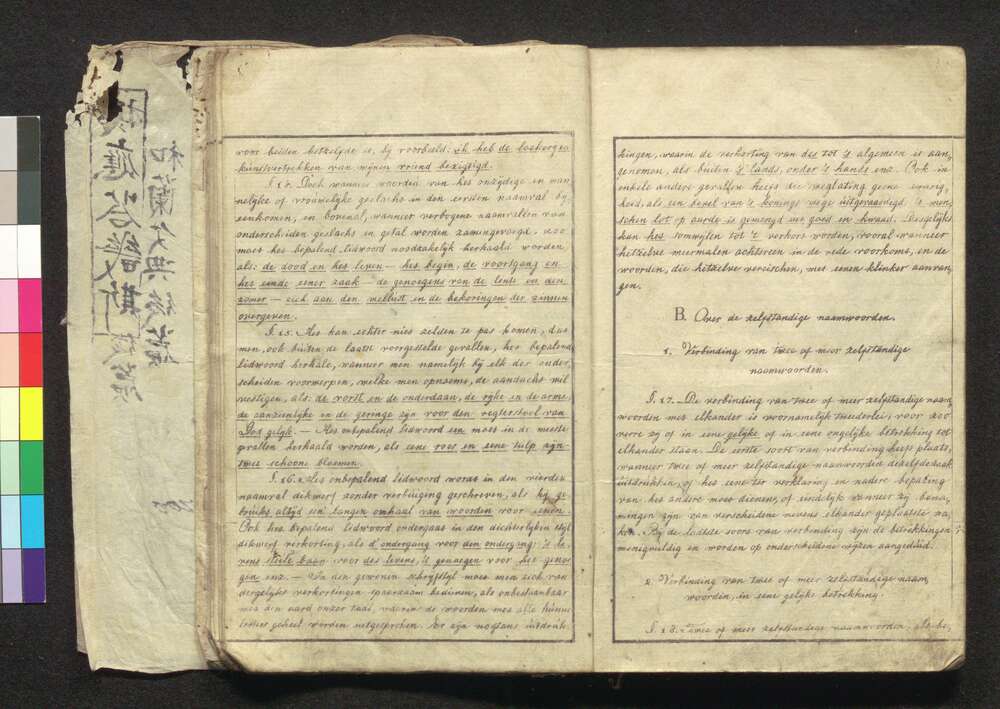 voor beiden hetzelfde is, bij voorbeeld: ik heb de boekerij en
kunstvertrekken van mijnen vriend bezigtigd.
§. 14. Doch wanneer woorden van het onzijdige en man
nelijke of vrouwelijke geslacht in den eersten naamval bij
eenkomen, en bovenal, wanneer verbogene naamvallen van
onderscheiden geslacht en getal worden zamengevoegd, zoo
moet het bepalend lidwoord noodzakelijk herhaald worden,
als: de dood en het leven — het begin, de voortgang en
het einde eener zaak — de genoegens van de lente en den
zomer — zich aan den wellust en de bekoringen der zinnen
overgeven.
§. 15. Men kan echter niet zelden te pas komen, dat
men, ook buiten de laatst voorgestelde gevallen, het bepalend
lidwoord herhale, wanneer men namelijk bij elk der onder
scheiden voorwerpen, welke men opnoemt, de aandacht wil
vestigen, als: de vorst en de onderdaan, de rijke en de arme,
de aanzienlijke en de geringe zijn voor den regterstoel van
God gelijk. — Het onbepalend lidwoord een moet in de meeste
gevallen herhaald worden, als eene roos en eene tulp zijn
twee schoone bloemen.
§. 16. Het onbepalend lidwoord wordt in den vierden
naamval dikwerf zonder verbuiging geschreven, als hij ge
bruikt altijd een' langen omhaal van woorden voor eenen.
Ook het bepalend lidwoord ondergaat in den dichterlijken stijl
dikwerf verkorting, als d'ondergang voor den ondergang; 's le
vens steile baan voor des levens, 't genoegen voor het genoe
gen enz. — In den gewonen schrijfstijl moet men zich van
dergelijke verkortingen spaarzaam bedienen, als onbestaanbaar
met den aard onzer taal, waarin de woorden met alle hunne
letters geheel worden uitgesproken. Er zijn nogtans uitdruk
kingen, waarin de verkorting van des tot 's algemeen is aan,
genomen, als buiten 's lands, onder 's hands enz. Ook in
enkele andere gevallen heeft die weglating geene zwarig,
heid, als een bevel van 's konings wege uitgevaardigd. 's men
schen lot op aarde is gemengd met goed en kwaad. Desgelijks
kan het somwijlen tot 't verkort worden, vooral wanneer
hetzelve meermalen achtereen in de rede voorkomt, en de
woorden, die hetzelve vereischen, met eenen klinker aanvan,
gen.
B. Over de zelfstandige naamwoorden.
1. Verbinding van twee of meer zelfstandige
naamwoorden.
§. 17. De verbinding van twee of meer zelfstandige naam
woorden met elkander is voornamelijk tweederlei, voor zoo
verre zij of in eene gelijke of in eene ongelijke betrekking tot
elkander staan. De eerste soort van verbinding heeft plaats,
wanneer twee of meer zelfstandige naamwoorden dezelfde zaak
uitdrukken, of het eene ter verklaring en nadere bepaling
van het andere moet dienen, of eindelijk wanneer zij bena,
mingen zijn van verscheidene nevens elkander geplaatste za,
ken. Bij de laatste soort van verbinding zijn de betrekkingen
menigvuldig en worden op onderscheidene wijzen aangeduid.
2. Verbinding van twee of meer zelfstandige naam,
woorden, in eene gelijke betrekking.
§. 18. Twee of meer zelfstandige naamwoorden, als be,